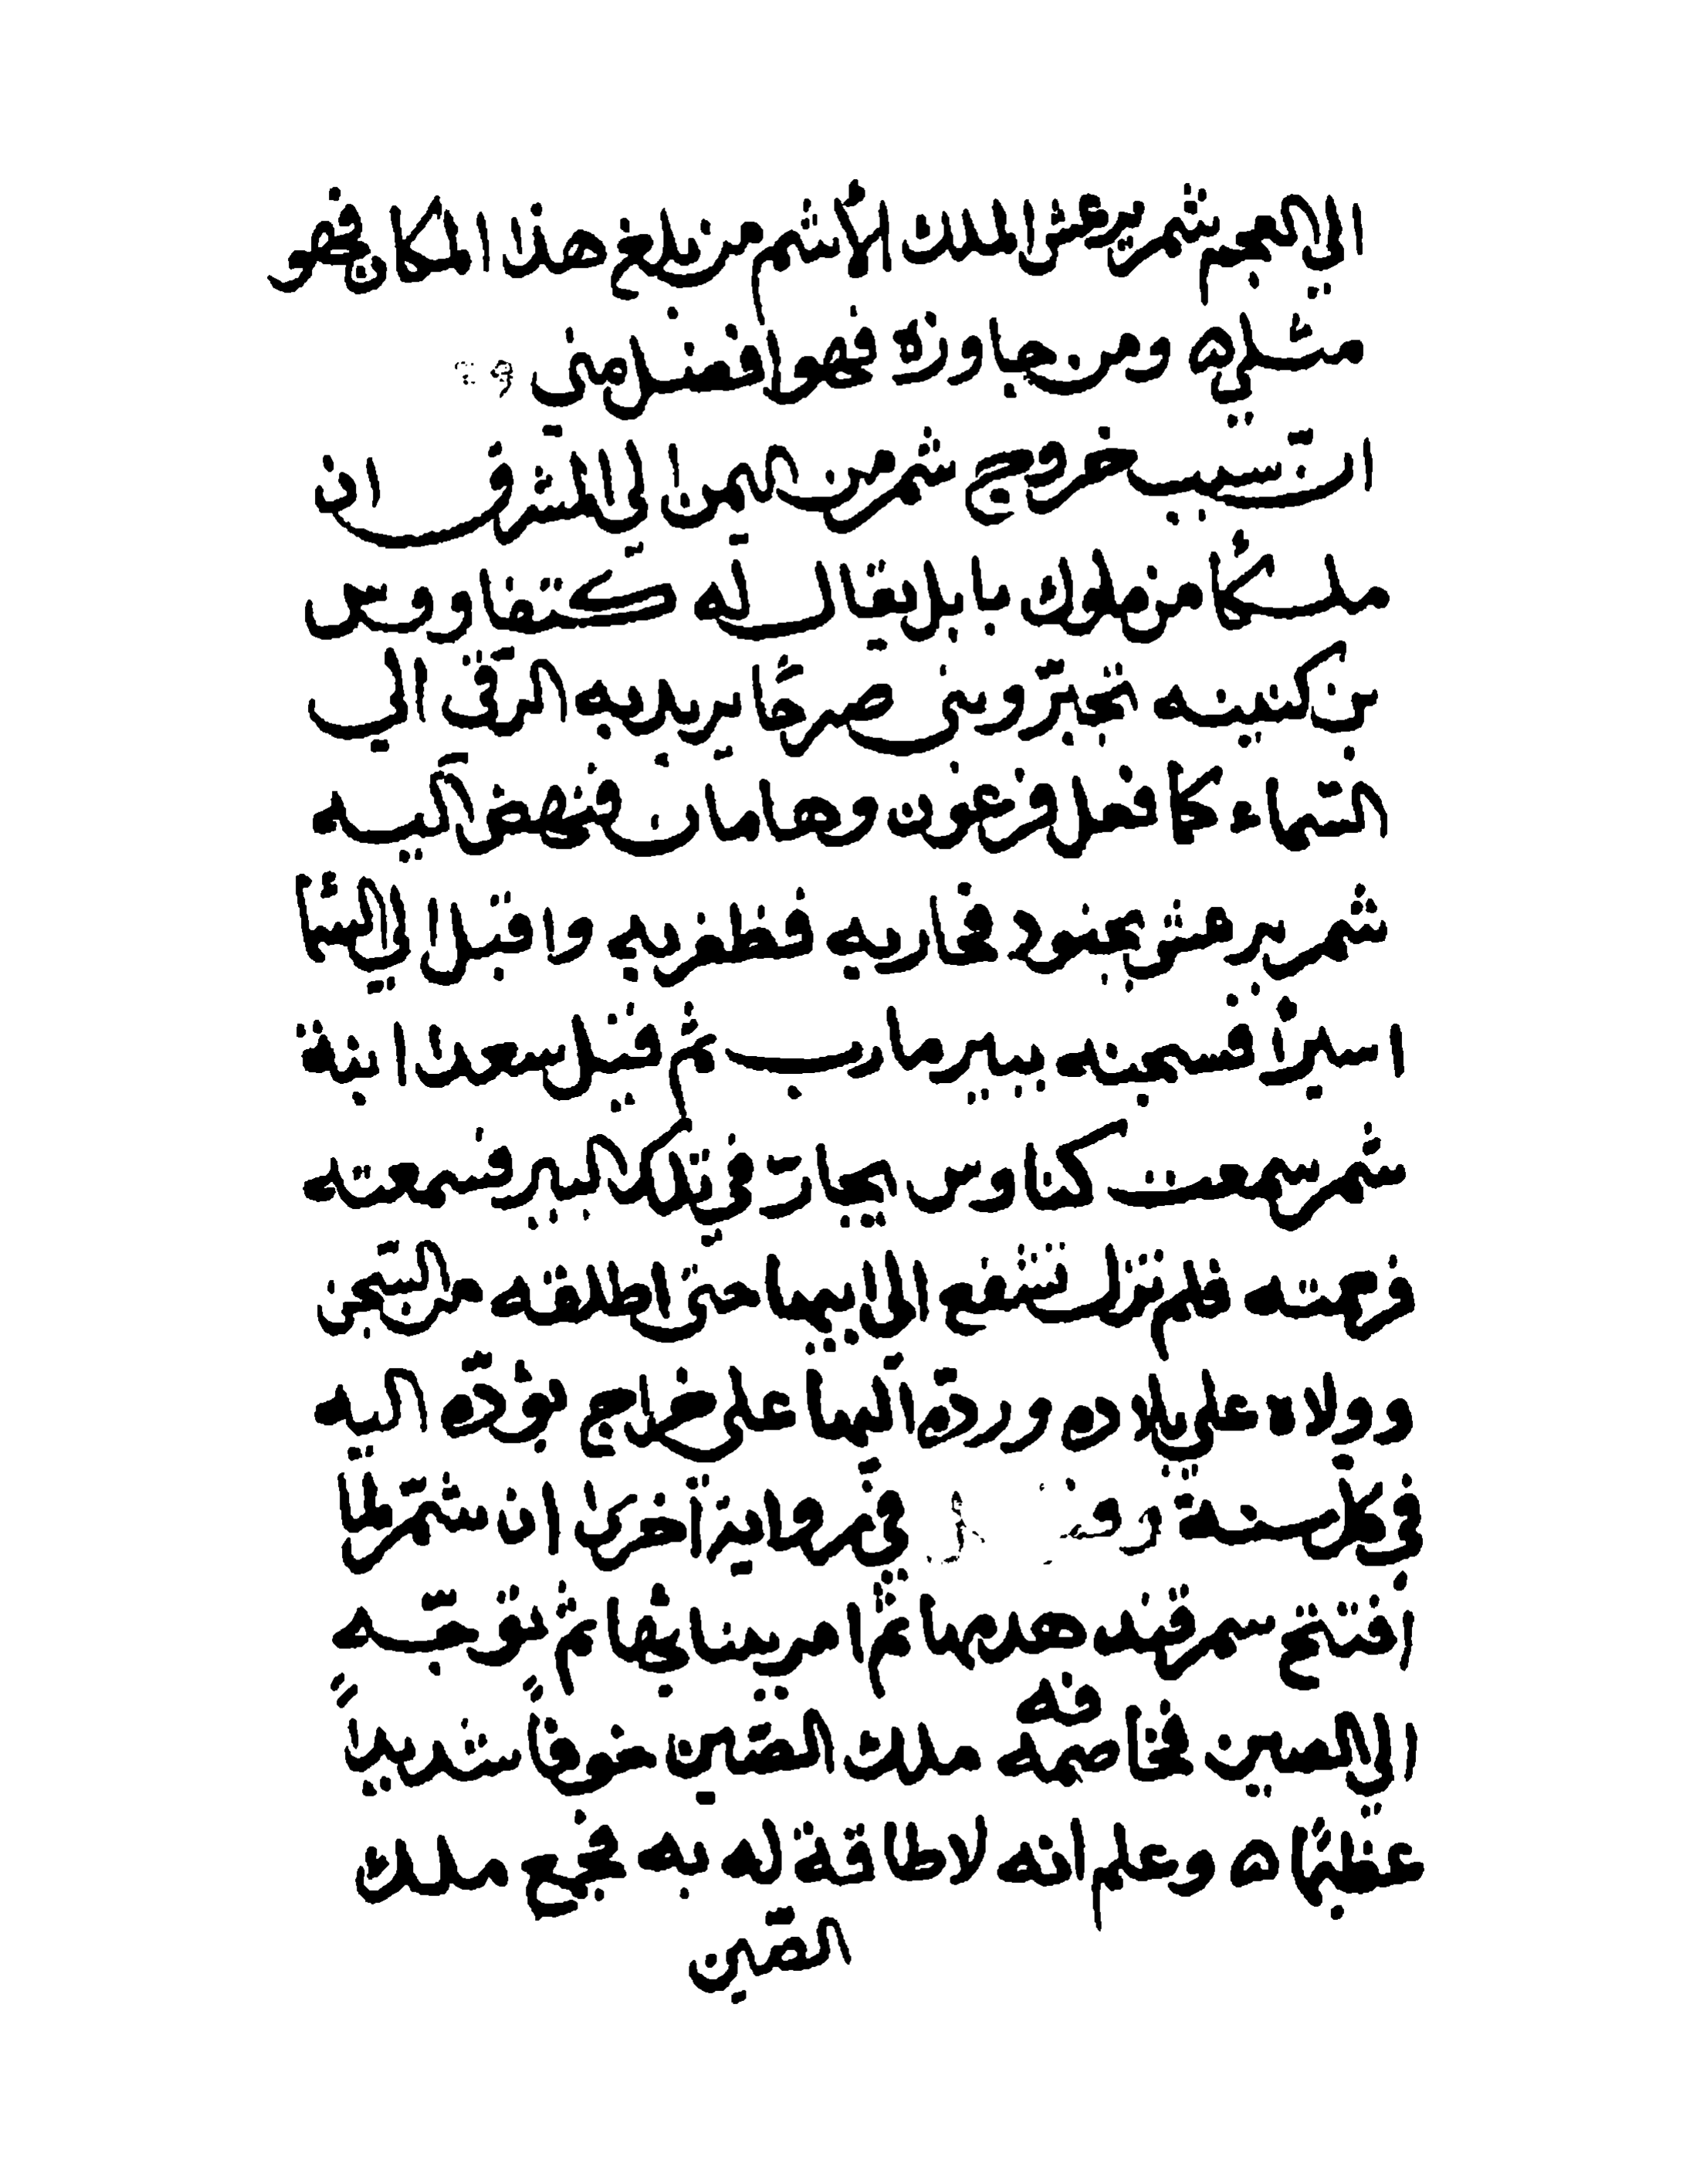 الي العجم شمر يرعش الملك الأشم من بلغ هذا المكان فهو
مثلي ه ومن جاوزه فهو افضل مني
ان سبب خروج شمر من اليمن الي المشرق ان
ملكا من ملوك بابل يقال له كتفاووس
بن كنينه تجبّر وبنى صرحًا يريد به الرقى الي
السّماء كما فعل فرعون وهامان فنهض اليه
شمر يرعش بجنود فحاربه فظفر به واقبل الي السما
اسيرًا فسجنه ببير مارب ثم قيل سعدا ابنة
شمر سمعت كناوس يجار في تلك البير فسمعته
فرحمته فلم تزل تشفع الى ابيها حتى اطلقه من السّجن
وولاه علي بلاده وردّه اليها على خراج يؤدّه اليه
في كل سنة في رواية أخرى ان شمّر لمّا
افتتح سمرقند هدمها ثم امر ببنايها ثم توجّه
الي الصين فخاصمه فه ملك الصّين خوفاً شديداً
عظيمًا ه وعلم انه لا طاقة له به فجمع ملك
الصّين